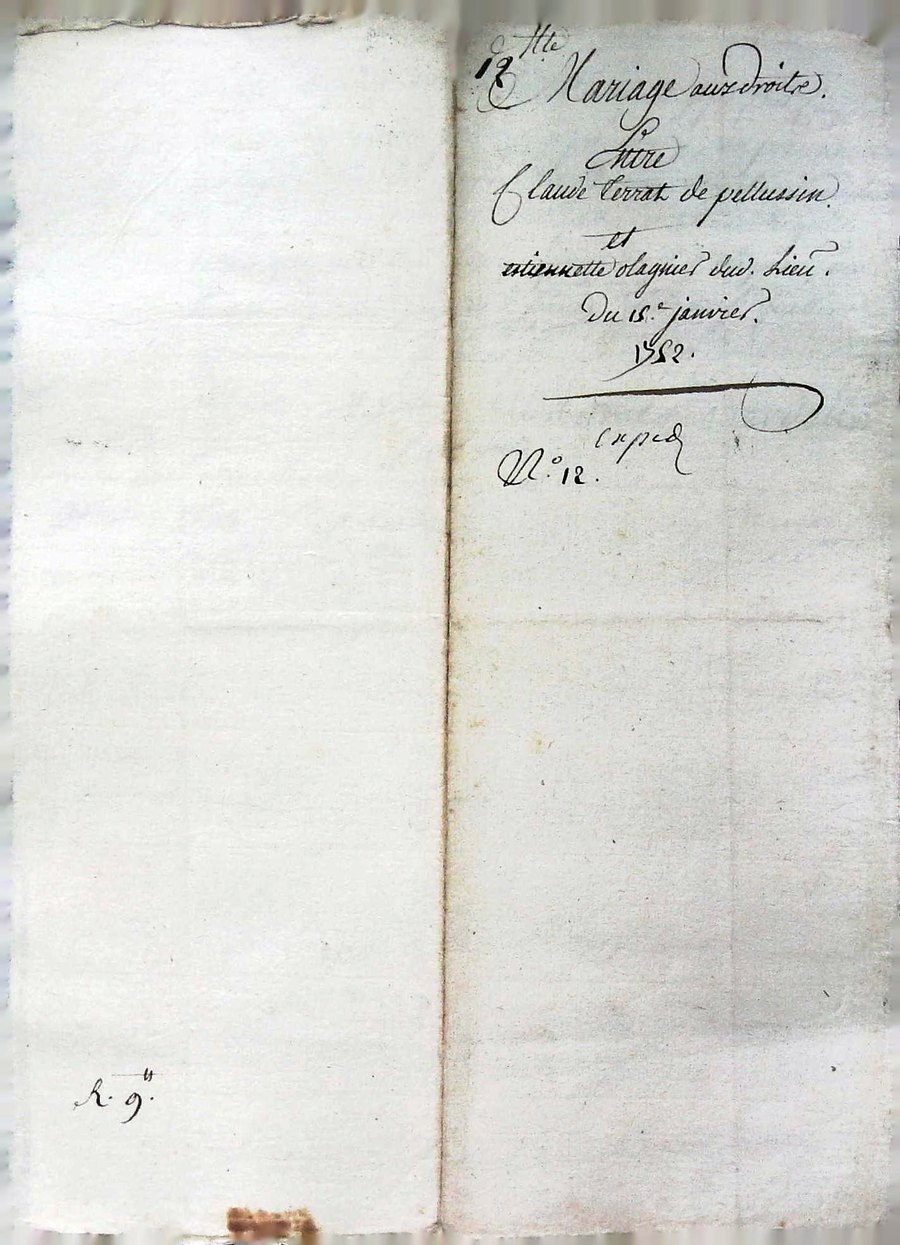 12
Mariage aux droits.
Entre
Claude Terrat de pellussin.
et
estiennette olagnier dud. Lieu.
Du 15.e janvier.
1752.
exped
N.o 12.
R. 9.tt